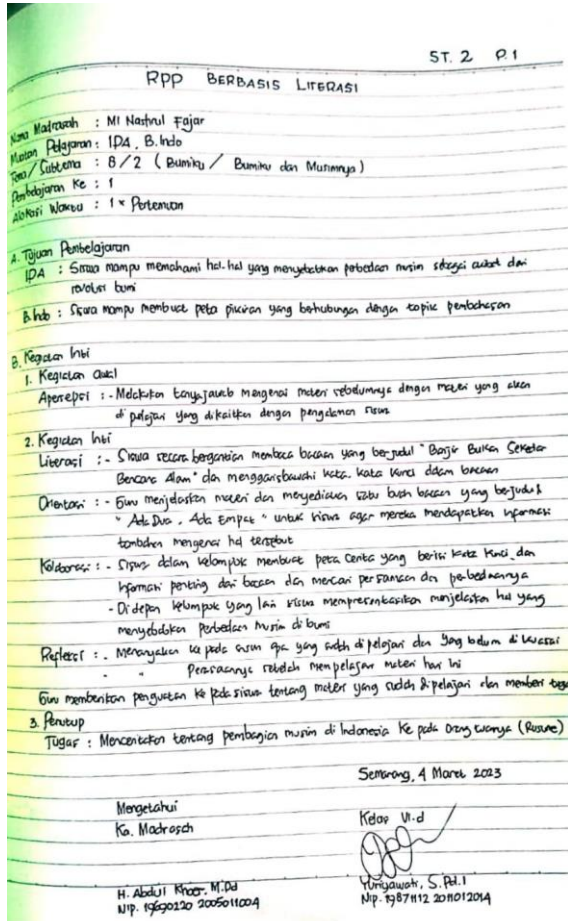 ST. 2 P.1
RPP BERBASIS LITERASI
Nama Madrasah : MI Nashrul Fajar
Muatan Pelajaran : IPA, B. Indo
Tema/Subtema : 8/2 (Bumiku / Bumiku dan Musimnya)
Pembelajaran Ke : 1
Alokasi Waktu : 1 x Pertemuan
A. Tujuan Pembelajaran
IPA : Siswa mampu memahami hal-hal yang menyebabkan perbedaan musim sebagai akibat dari
revolusi bumi
B. Indo : Siswa mampu membuat peta pikiran yang berhubungan dengan topik pembahasan
B. Kegiatan Inti
1. Kegiatan awal
Apersepsi : - Melakukan tanya jawab mengenai materi sebelumnya dengan materi yang akan
di pelajari yang dikaitkan dengan pengalaman siswa
2. Kegiatan Inti
Literasi : - Siswa secara bergantian membaca bacaan yang berjudul "Banjir Bukan Sekedar
Bencana Alam" dan menggarisbawahi kata-kata kunci dalam bacaan
Orientasi : - Guru menjelaskan materi dan menyediakan satu buah bacaan yang berjudul
"Ada Dua, Ada Empat" untuk siswa agar mereka mendapatkan informasi
tambahan mengenai hal tersebut
Kolaborasi : - Siswa dalam kelompok membuat peta cerita yang berisi kata kunci, dan
informasi penting dari bacaan dan mencari persamaan dan perbedaannya
- Di depan kelompok yang lain siswa mempresentasikan menjelaskan hal yang
menyebabkan perbedaan musim di bumi
Refleksi : - Menanyakan ke pada siswa apa yang sudah di pelajari dan yang belum di kuasai
- " Perasaannya setelah mempelajari materi hari ini
Guru memberikan penguatan ke pada siswa tentang materi yang sudah dipelajari dan memberi
3. Penutup
Tugas : Menceritakan tentang pembagian musim di Indonesia ke pada orang tuanya (Resume)
Semarang, 4 Maret 2023
Mengetahui
Ka. Madrasah
Kelas VI.d
H. Abdul Khoer. M.Pd
Nip. 19690220 2005011004
Yuniyawati, S.Pd.I
Nip. 19871112 2011012014